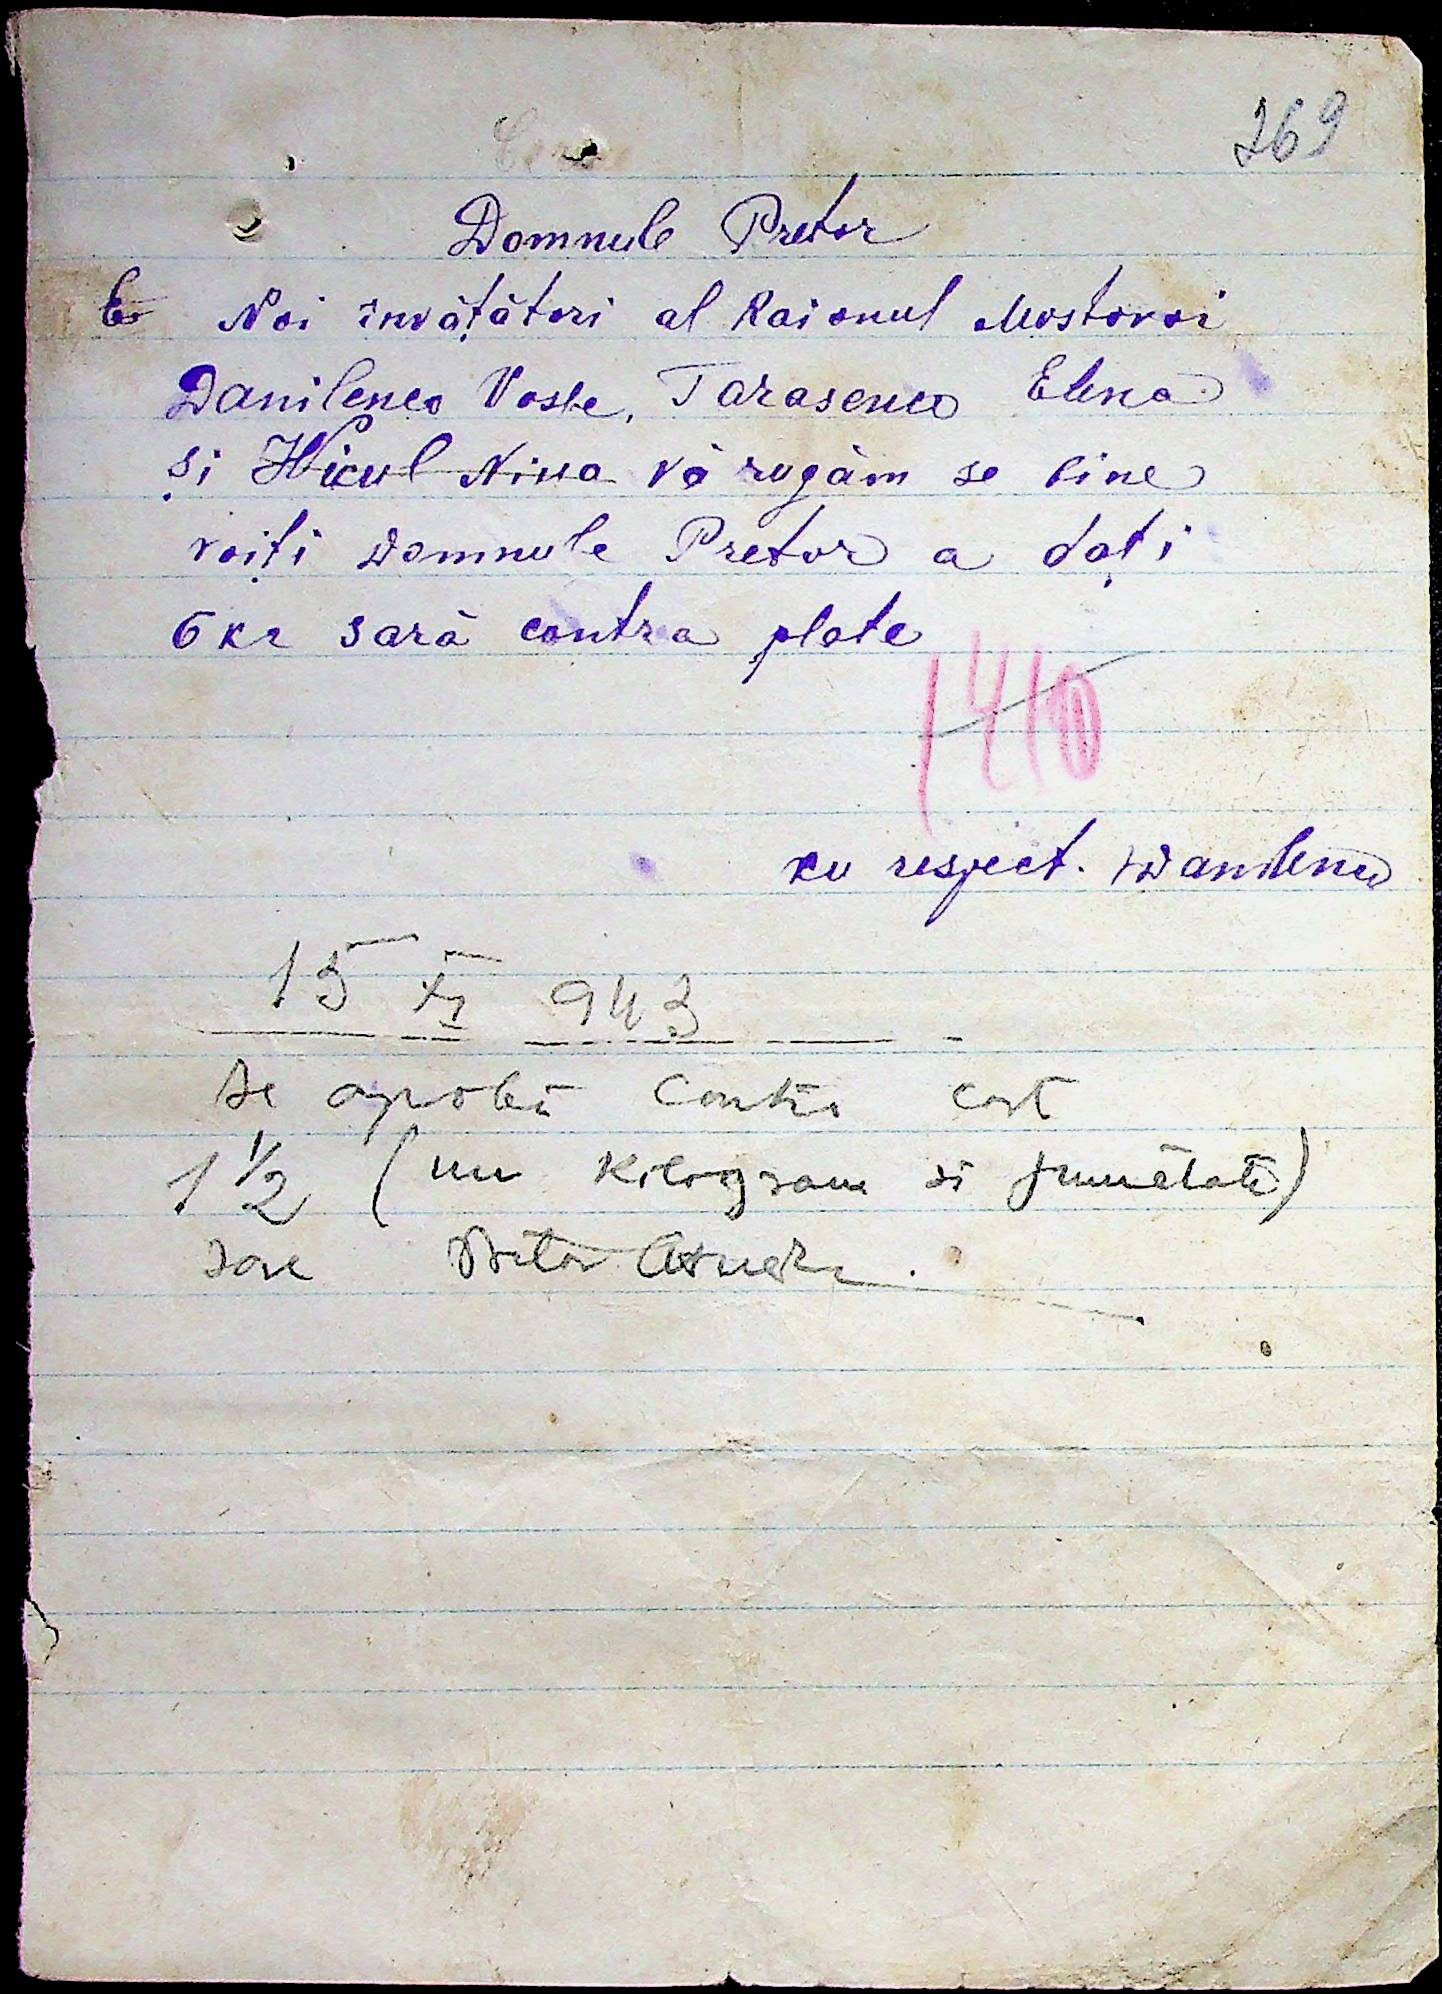 269
Domnule Pretor
Noi învăţători al Raionul Mostovoi
Danilenco Vosle, Tarasenco Elena
şi Hicul Nina vă rugăm se bine
voiţi Domnule Pretor a daţi
6 kr sară contra plate
1410
ku respect. Danilenco
15 XI 943
se aprobă contra cost
1 1/2 (un kilogram si jumătate)
sare Pretor